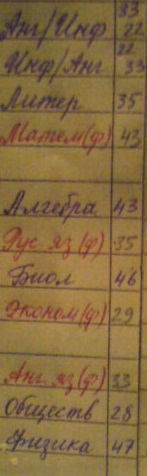 Анг/Инф 33 22
Инф/Анг 22 33
Литер 35
Матем(ф) 43
Алгебра 43
Рус яз (ф) 35
Биол 46
Эконом(ф) 29
Анг. яз(ф) 33
Обществ 28
Физика 47